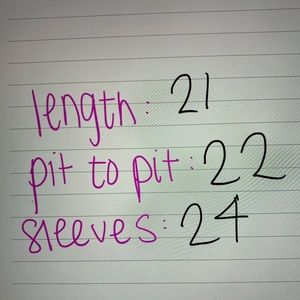 length: 21
pit to pit: 22
sleeves: 24